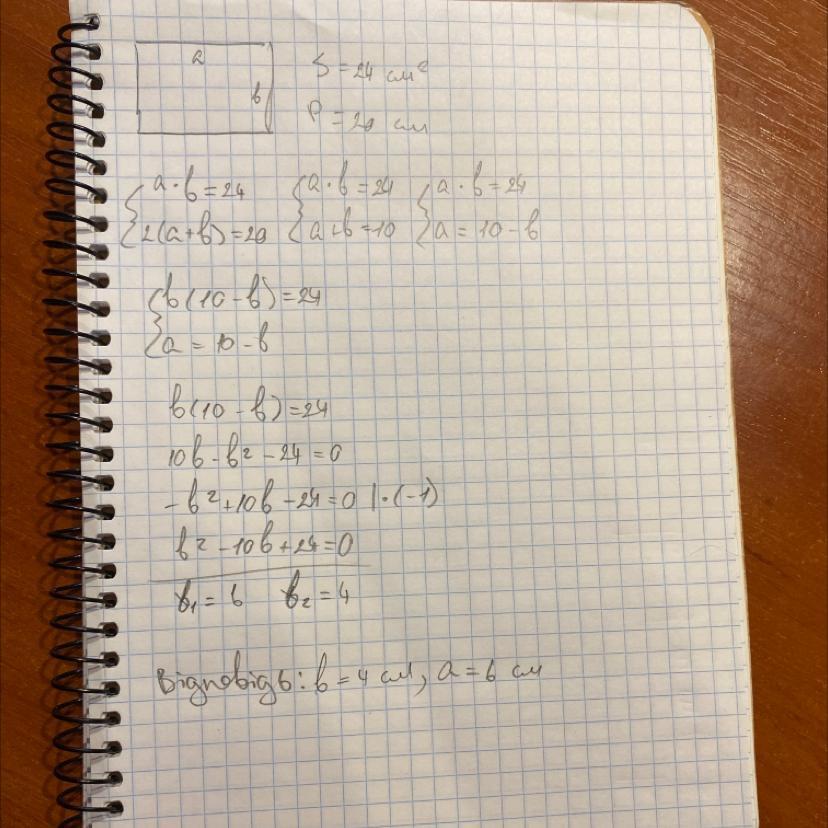 a
b
S = 24 см²
P = 20 см
{a · b = 24 {a · b = 24 {a · b = 24
{2(a+b) = 20 {a+b = 10 {a = 10 - b
{b(10 - b) = 24
{a = 10 - b
b(10 - b) = 24
10b - b² - 24 = 0
-b² + 10b - 24 = 0 | · (-1)
b² - 10b + 24 = 0
b₁ = 6 b₂ = 4
Відповідь: b = 4 см, a = 6 см